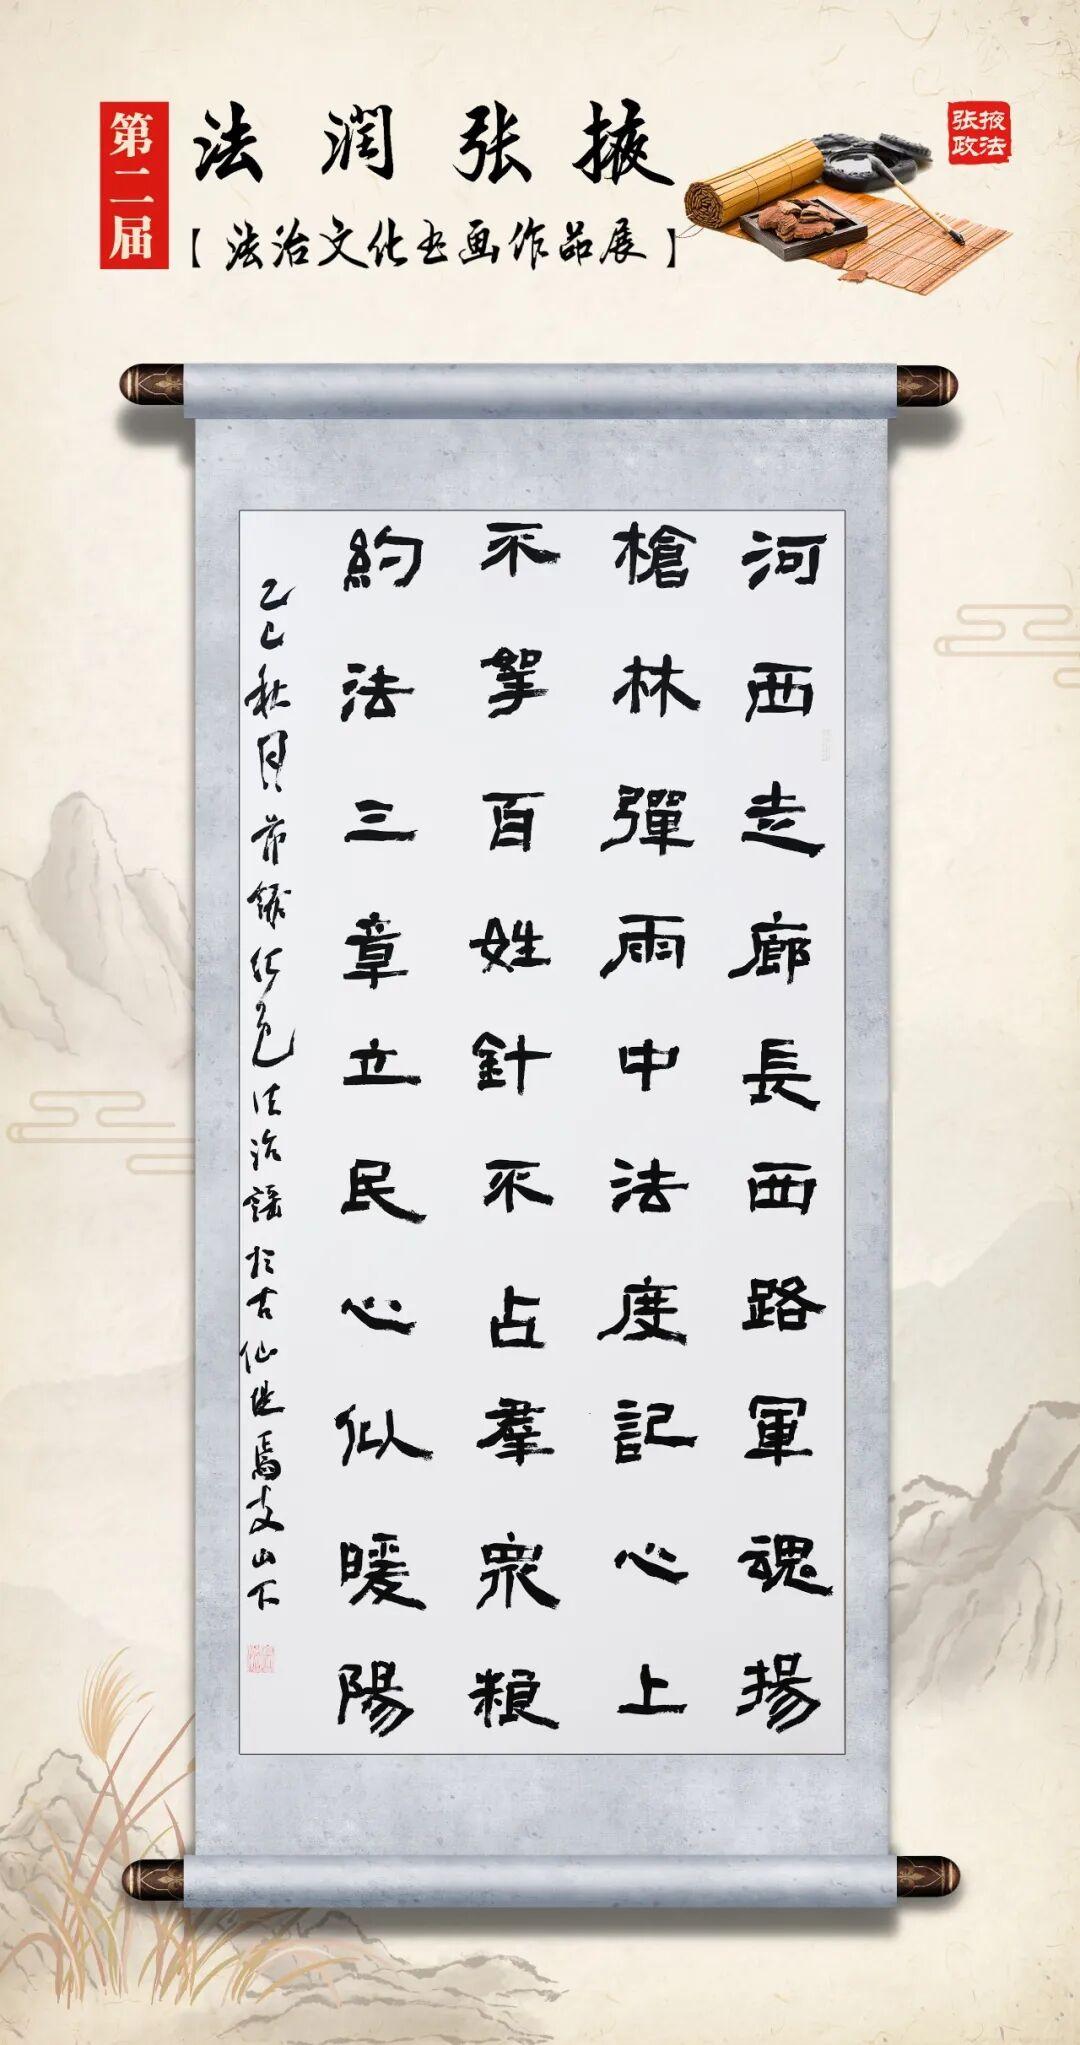 第二届
法润张掖
【法治文化书画作品展】
张掖政法
河西走廊長西路軍魂揚
槍林彈雨中法度記心上
不拏百姓針不占羣眾粮
約法三章立民心似暖陽
乙巳秋月節錄紅色法治謠於古仙堤焉支山下